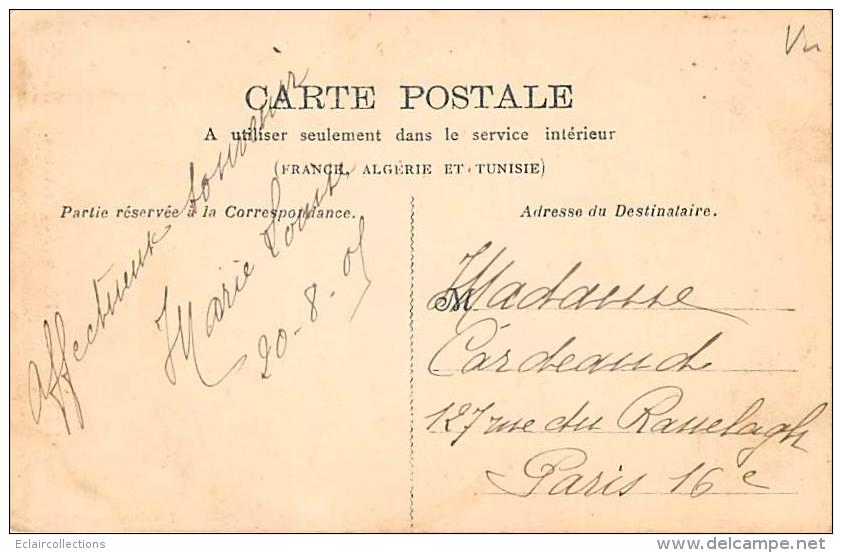 CARTE POSTALE
A utiliser seulement dans le service intérieur
(FRANCE, ALGÉRIE ET TUNISIE)
Partie réservée à la Correspondance.
Adresse du Destinataire.
Affectueux souvenir
Marie Louise
20-8-05
M Madame
Cardeaud
127 rue du Ranelagh
Paris 16e
Eclaircollections
www.delcampe.net